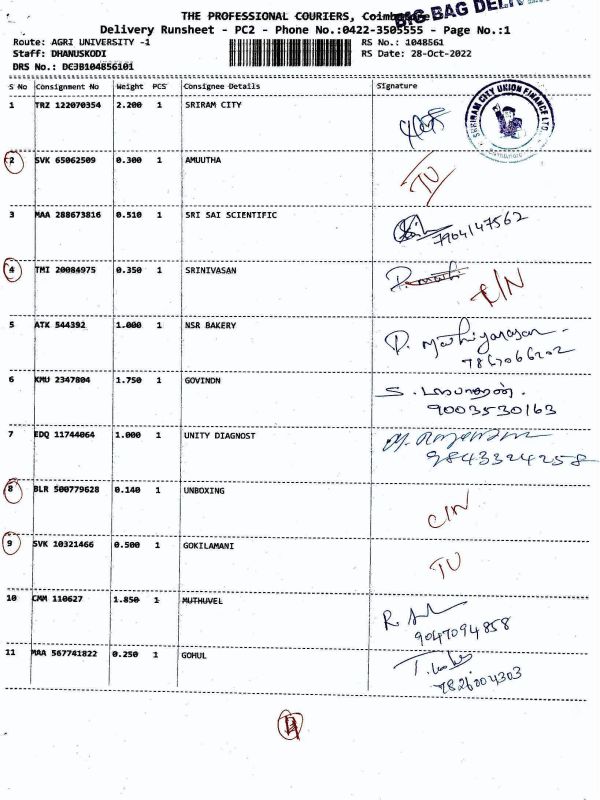 THE PROFESSIONAL COURIERS, Coimbatore
BIG BAG
Delivery Runsheet - PC2 - Phone No.:0422-3505555 - Page No.:1
Route: AGRI UNIVERSITY -1 RS No.: 1048561
Staff: DHANUSKODI RS Date: 28-Oct-2022
DRS No.: DC3B104856101
S No Consignment No Weight PCS Consignee Details Signature
1 TRZ 122070354 2.200 1 SRIRAM CITY
SHRIRAM CITY UNION FINANCE LTD
2 SVK 65062509 0.300 1 AMUUTHA TU
3 MAA 288673816 0.510 1 SRI SAI SCIENTIFIC 7904147562
4 TMI 20084975 0.350 1 SRINIVASAN
5 ATK 544392 1.000 1 NSR BAKERY P. Mathiyarasan
7867066202
6 KMU 2347804 1.750 1 GOVINDN
9003530163
7 EDQ 11744064 1.000 1 UNITY DIAGNOST
9843324258
8 BLR 500779628 0.140 1 UNBOXING C/N
9 SVK 10321466 0.500 1 GOKILAMANI TU
10 CMM 110627 1.850 1 MUTHUVEL
9047094858
11 MAA 567741822 0.250 1 GOHUL
7826004303